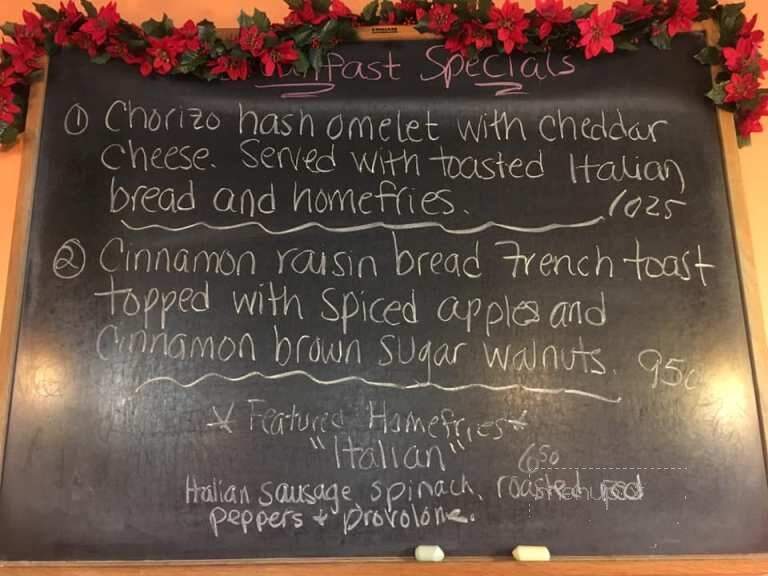 Breakfast Specials
① Chorizo hash omelet with cheddar
cheese. Served with toasted Italian
bread and homefries. 1025
② Cinnamon raisin bread French toast
topped with spiced apples and
Cinnamon brown sugar walnuts. 950
* Featured Homefries *
"Italian" 650
Italian sausage, spinach, roasted red
peppers + provolone.